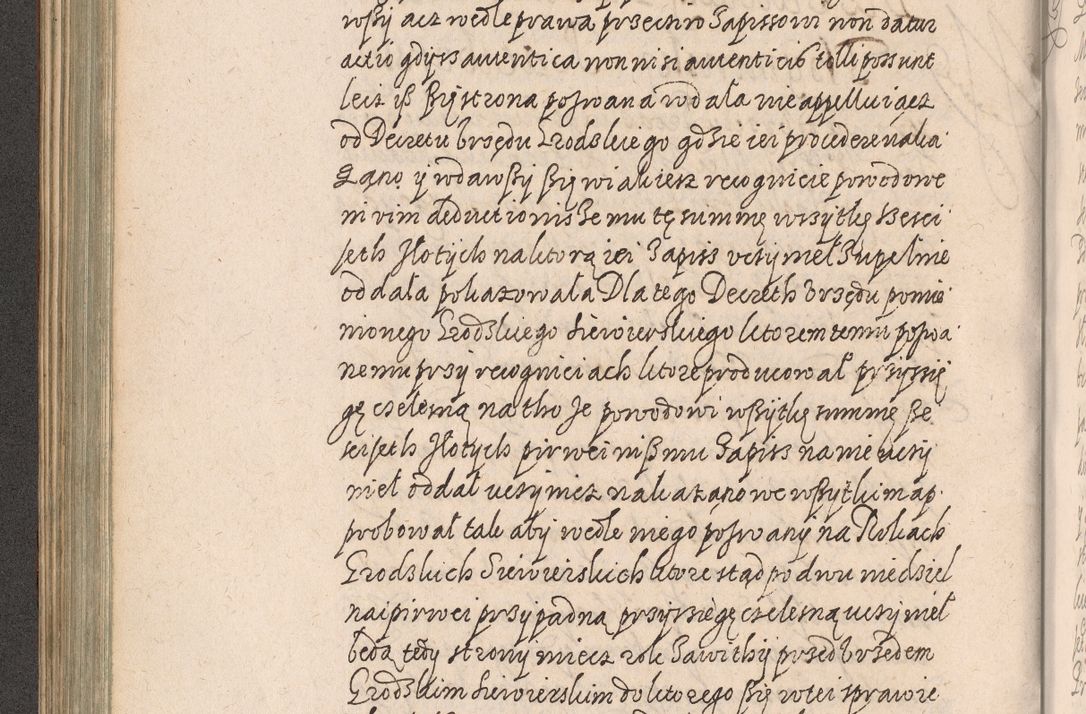 wſzy acz wedle prawa przeciwo Zapissowi non datur
actio gdysz autentica non nisi autenticis tolli possunt
lecz iß ßię strona pozwana wdała nie appelluiącz
od Decretu vrzędu Grodskiego gdzie iei procedere naka
zano y wdawßy ßię wiakiesz recognicie powodowe
ni vim deductionis że mu tę summę wszytkę szesci
seth złotych na ktorą iei Zapiss vczynieł Zupełnie
oddała pokazowała Dla tego Decreth vrzędu pomie
nionego Grodskiego Siewierskiego ktorem temu pozwa
nemu przy recogniciach ktore producował przysię
gę czelesną na tho Je powodowi wßytkę summę ße
sciseth złotych pirwei niß mu Zapiss na nie vczy
nieł oddał vczynicz nakazano we wßytkim ap
probował tak aby wedle niego pozwany na Rokach
Grodskich Siewierskich ktore stąd po dwu niedziel
naipirwei przypadną przysięgę czelesną vczynieł
będą tedy strony miecz rok Zawithy przed vrzedem
Grodskim Siewierskim do ktorego ßię wtei sprawie